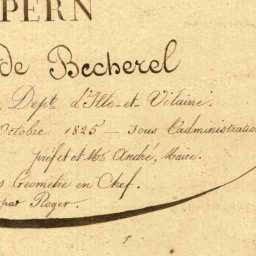 PERN
de Becherel
Dept d'Ille-et-Vilaine.
Octobre 1825 — Sous l'administration
préfet et Mr André, Maire.
Géometre en Chef.
par Roger.